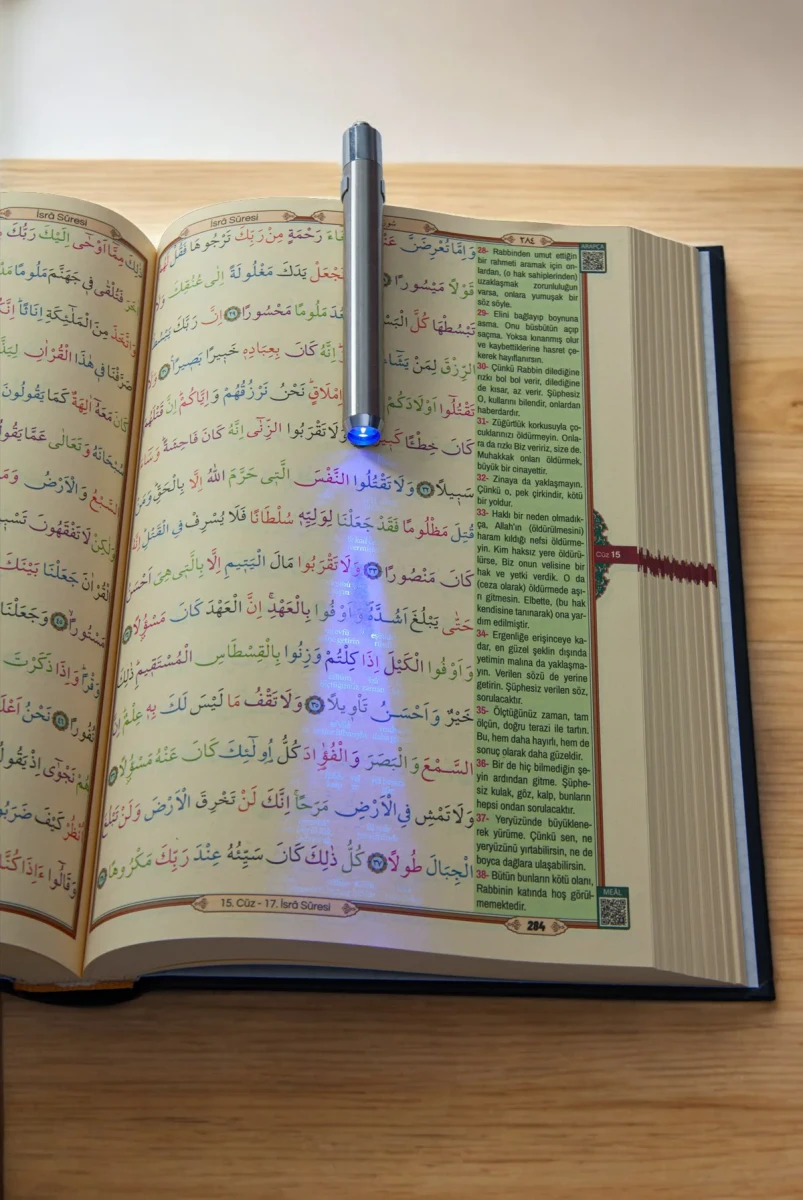 İsrâ Sûresi
ذٰلِكَ مِمَّٓا اَوْحٰٓى اِلَيْكَ
فَتُلْقٰى فِي جَهَنَّمَ مَلُومًا
وَاتَّخَذَ مِنَ الْمَلٰٓئِكَةِ اِنَاثًا
صَرَّفْنَا فِي هٰذَا الْقُرْاٰنِ
كَانَ مَعَهُٓ اٰلِهَةٌ كَمَا يَقُولُونَ
سُبْحَانَهُ وَتَعَالٰى عَمَّا
السَّبْعُ وَالْاَرْضُ
وَلٰكِنْ لَا تَفْقَهُونَ
الْقُرْاٰنَ جَعَلْنَا بَيْنَكَ
مَسْتُورًا ﴿٤٥﴾ وَجَعَلْنَا
وَقْرًا وَاِذَا ذَكَرْتَ
نُفُورًا ﴿٤٦﴾ نَحْنُ
هُمْ نَجْوٰٓى اِذْ يَقُولُ
اُنْظُرْ كَيْفَ ضَرَبُوا
وَقَالُٓوا ءَاِذَا كُنَّا
İsrâ Sûresi
٢٨٤
وَاِمَّا تُعْرِضَنَّ رَحْمَةٍ مِنْ رَبِّكَ تَرْجُوهَا فَقُلْ
قَوْلًا مَيْسُورًا يَدَكَ مَغْلُولَةً اِلٰى عُنُقِكَ
تَبْسُطْهَا كُلَّ مَلُومًا مَحْسُورًا ﴿٢٩﴾ اِنَّ رَبَّكَ
الرِّزْقَ لِمَنْ يَشَٓاءُ اِنَّهُ كَانَ بِعِبَادِهِ خَبِيرًا بَصِيرًا ﴿٣٠﴾
تَقْتُلُٓوا اَوْلَادَكُمْ اِمْلَاقٍ نَحْنُ نَرْزُقُهُمْ وَاِيَّاكُمْ اِنَّ قَتْلَهُمْ
كَانَ خِطْـًٔا وَلَا تَقْرَبُوا الزِّنٰٓى اِنَّهُ كَانَ فَاحِشَةً
سَبِيلًا ﴿٣٢﴾ وَلَا تَقْتُلُوا النَّفْسَ الَّتِي حَرَّمَ اللّٰهُ اِلَّا بِالْحَقِّ وَمَنْ
قُتِلَ مَظْلُومًا فَقَدْ جَعَلْنَا لِوَلِيِّهِ سُلْطَانًا فَلَا يُسْرِفْ فِي الْقَتْلِ
كَانَ مَنْصُورًا ﴿٣٣﴾ وَلَا تَقْرَبُوا مَالَ الْيَتِيمِ اِلَّا بِالَّتِي هِيَ اَحْسَنُ
حَتّٰى يَبْلُغَ اَشُدَّهُ وَاَوْفُوا بِالْعَهْدِ اِنَّ الْعَهْدَ كَانَ مَسْؤُلًا ﴿٣٤﴾
وَاَوْفُوا الْكَيْلَ اِذَا كِلْتُمْ وَزِنُوا بِالْقِسْطَاسِ الْمُسْتَقِيمِ ذٰلِكَ
خَيْرٌ وَاَحْسَنُ تَأْوِيلًا ﴿٣٥﴾ وَلَا تَقْفُ مَا لَيْسَ لَكَ بِهِ عِلْمٌ اِنَّ
السَّمْعَ وَالْبَصَرَ وَالْفُؤَادَ كُلُّ اُولٰٓئِكَ كَانَ عَنْهُ مَسْؤُلًا ﴿٣٦﴾
وَلَا تَمْشِ فِي الْاَرْضِ مَرَحًا اِنَّكَ لَنْ تَخْرِقَ الْاَرْضَ وَلَنْ تَبْلُغَ
الْجِبَالَ طُولًا ﴿٣٧﴾ كُلُّ ذٰلِكَ كَانَ سَيِّئُهُ عِنْدَ رَبِّكَ مَكْرُوهًا ﴿٣٨﴾
15. Cüz - 17. İsrâ Sûresi
ARAPÇA
28- Rabbinden umut ettiğin
bir rahmeti aramak için on-
lardan, (o hak sahiplerinden)
uzaklaşmak zorunluluğun
varsa, onlara yumuşak bir
söz söyle.
29- Elini bağlayıp boynuna
asma. Onu büsbütün açıp
saçma. Yoksa kınanmış olur
ve kaybettiklerine hasret çe-
kerek hayıflanırsın.
30- Çünkü Rabbin dilediğine
rızkı bol bol verir, dilediğine
de kısar, az verir. Şüphesiz
O, kullarını bilendir, onlardan
haberdardır.
31- Züğürtlük korkusuyla ço-
cuklarınızı öldürmeyin. Onla-
ra da rızkı Biz veririz, size de.
Muhakkak onları öldürmek,
büyük bir cinayettir.
32- Zinaya da yaklaşmayın.
Çünkü o, pek çirkindir, kötü
bir yoldur.
33- Haklı bir neden olmadık-
ça, Allah'ın (öldürülmesini)
haram kıldığı nefsi öldürme-
yin. Kim haksız yere öldürü-
lürse, Biz onun velisine bir
hak ve yetki verdik. O da
(ceza olarak) öldürmede aşı-
rı gitmesin. Elbette, (bu hak
kendisine tanınarak) ona yar-
dım edilmiştir.
34- Ergenliğe erişinceye ka-
dar, en güzel şeklin dışında
yetimin malına da yaklaşma-
yın. Verilen sözü de yerine
getirin. Şüphesiz verilen söz,
sorulacaktır.
35- Ölçtüğünüz zaman, tam
ölçün, doğru terazi ile tartın.
Bu, hem daha hayırlı, hem de
sonuç olarak daha güzeldir.
36- Bir de hiç bilmediğin şe-
yin ardından gitme. Şüphe-
siz kulak, göz, kalp, bunların
hepsi ondan sorulacaktır.
37- Yeryüzünde büyüklene-
rek yürüme. Çünkü sen, ne
yeryüzünü yırtabilirsin, ne de
boyca dağlara ulaşabilirsin.
38- Bütün bunların kötü olanı,
Rabbinin katında hoş görül-
memektedir.
Cüz 15
MEÂL
284